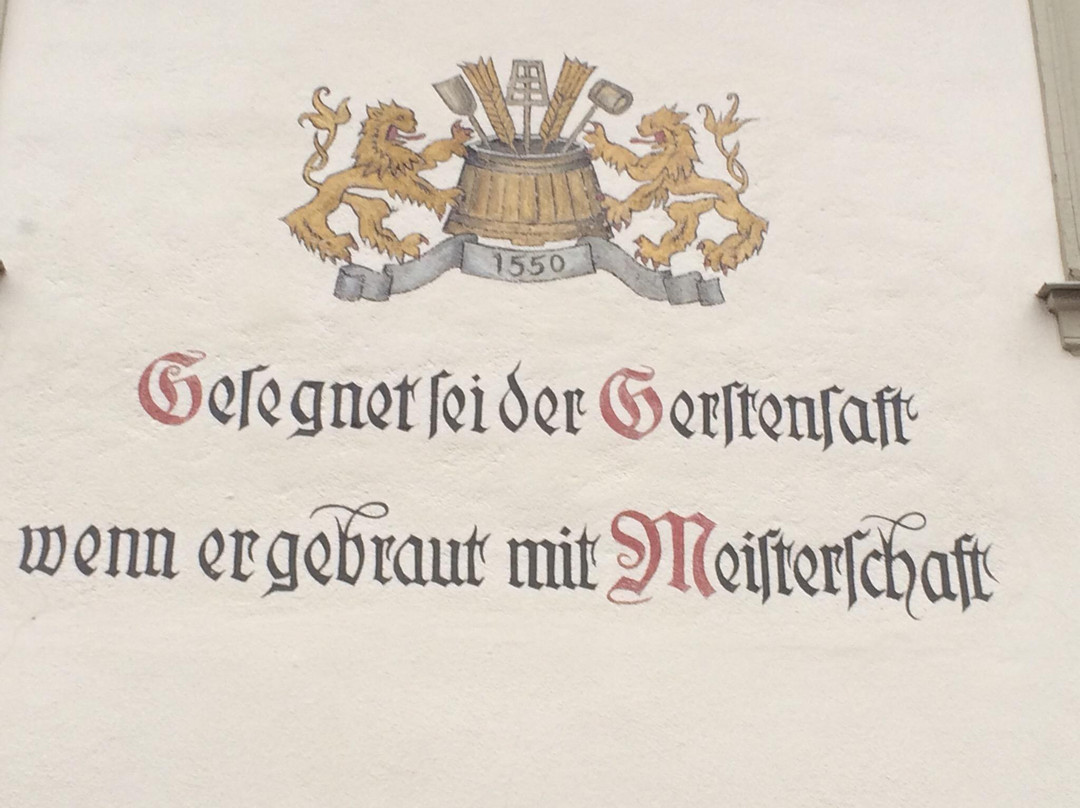 1550
Gesegnet sei der Gerstensaft
wenn er gebraut mit Meisterschaft